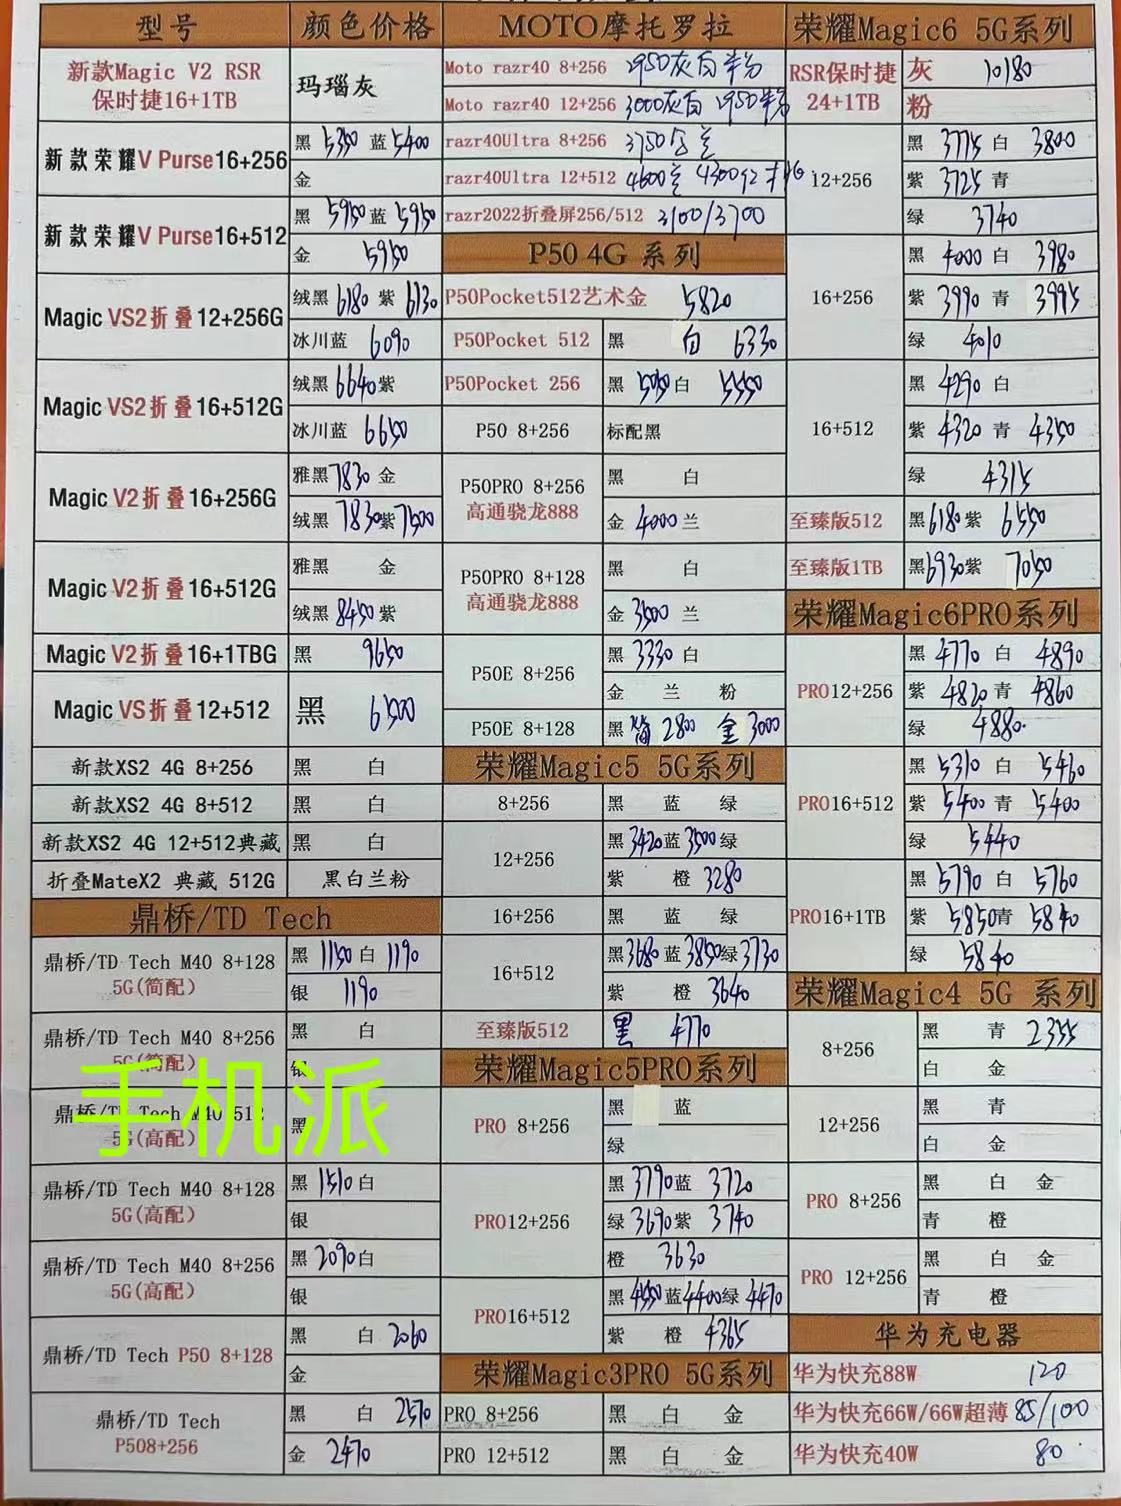 型号 颜色价格
新款Magic V2 RSR
保时捷16+1TB
玛瑙灰
新款荣耀V Purse16+256
黑 5350 蓝 5400
金
新款荣耀V Purse16+512
黑 5950 蓝 5950
金 5950
Magic VS2折叠12+256G
绒黑 6180 紫 6130
冰川蓝 6090
Magic VS2折叠16+512G
绒黑 6640 紫
冰川蓝 6650
Magic V2折叠16+256G
雅黑 7830 金
绒黑 7830 紫 7500
Magic V2折叠16+512G
雅黑 金
绒黑 8450 紫
Magic V2折叠16+1TBG
黑 9650
Magic VS折叠12+512
黑 6500
新款XS2 4G 8+256 黑 白
新款XS2 4G 8+512 黑 白
新款XS2 4G 12+512典藏 黑 白
折叠MateX2 典藏 512G 黑白兰粉
鼎桥/TD Tech
鼎桥/TD Tech M40 8+128
5G(简配)
黑 1150 白 1190
银 1190
鼎桥/TD Tech M40 8+256
5G(简配)
黑 白
银
手机派
鼎桥/TD Tech M40 512
5G(高配)
黑
鼎桥/TD Tech M40 8+128
5G(高配)
黑 1510 白
银
鼎桥/TD Tech M40 8+256
5G(高配)
黑 2090 白
银
鼎桥/TD Tech P50 8+128
黑 白 2060
金
鼎桥/TD Tech
P508+256
黑 白 2570
金 2470
MOTO摩托罗拉
Moto razr40 8+256 2950灰白 粉
Moto razr40 12+256 3000灰白 2950粉
razr40Ultra 8+256 3750
razr40Ultra 12+512 4600 4300红
razr2022折叠屏256/512 3100/3700
P50 4G 系列
P50Pocket512艺术金 5820
P50Pocket 512 黑 白 6330
P50Pocket 256 黑 5050 白 5550
P50 8+256 标配黑
P50PRO 8+256
高通骁龙888
黑 白
金 4000 兰
P50PRO 8+128
高通骁龙888
黑 白
金 3500 兰
P50E 8+256
黑 3330 白
金 兰 粉
P50E 8+128 黑 简 2800 金 3000
荣耀Magic5 5G系列
8+256 黑 蓝 绿
12+256
黑 3420 蓝 3500 绿
紫 橙 3280
16+256 黑 蓝 绿
16+512
黑 3680 蓝 3850 绿 3730
紫 橙 3640
至臻版512 黑 4770
荣耀Magic5PRO系列
PRO 8+256
黑 蓝
绿
PRO12+256
黑 3790 蓝 3720
绿 3690 紫 3740
橙 3630
PRO16+512
黑 4550 蓝 4400 绿 4470
紫 橙 4365
荣耀Magic3PRO 5G系列
PRO 8+256 黑 白 金
PRO 12+512 黑 白 金
荣耀Magic6 5G系列
RSR保时捷
24+1TB
灰 10180
粉
12+256
黑 3775 白 3800
紫 3725 青
绿 3740
16+256
黑 4000 白 3980
紫 3990 青 3995
绿 4010
16+512
黑 4290 白
紫 4320 青 4350
绿 4315
至臻版512 黑 6180 紫 6550
至臻版1TB 黑 6930 紫 7050
荣耀Magic6PRO系列
PRO12+256
黑 4770 白 4890
紫 4820 青 4860
绿 4880
PRO16+512
黑 5310 白 5460
紫 5400 青 5400
绿 5440
PRO16+1TB
黑 5790 白 5760
紫 5850 青 5840
绿 5840
荣耀Magic4 5G 系列
8+256
黑 青 2355
白 金
12+256
黑 青
白 金
PRO 8+256
黑 白 金
青 橙
PRO 12+256
黑 白 金
青 橙
华为充电器
华为快充88W 120
华为快充66W/66W超薄 85/100
华为快充40W 80